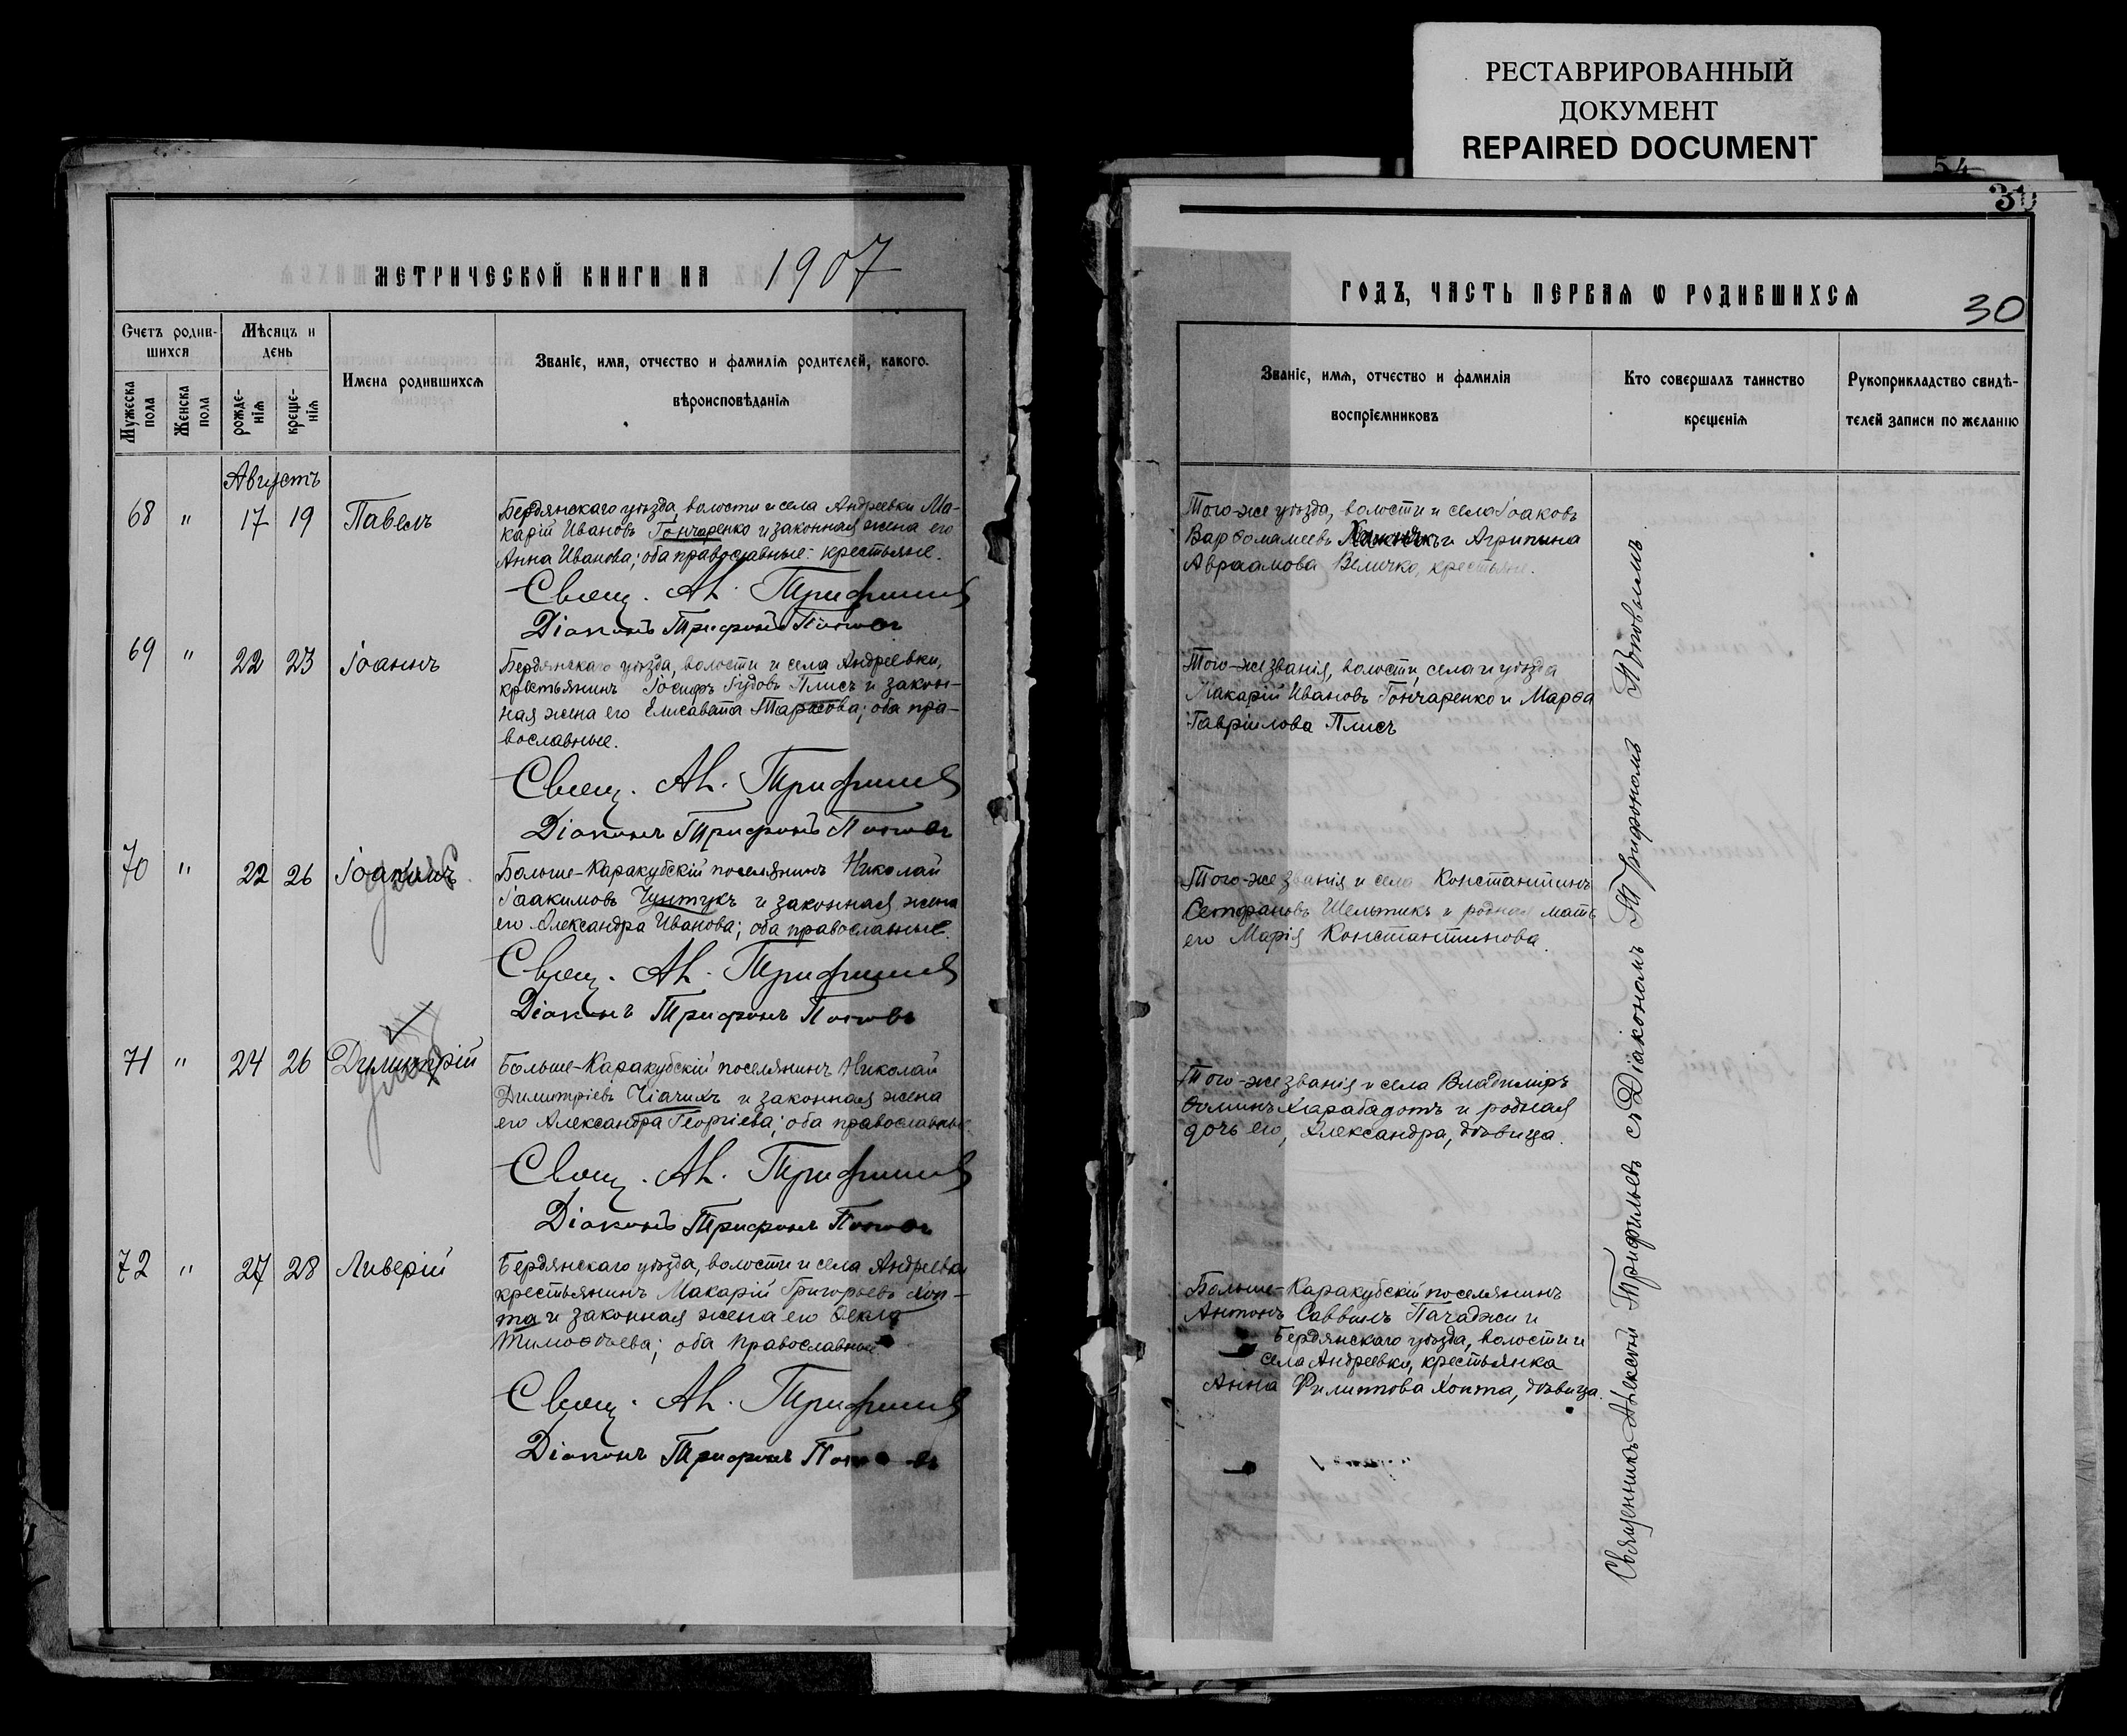 РЕСТАВРИРОВАННЫЙ
ДОКУМЕНТ
REPAIRED DOCUMENT
54
30
МЕТРИЧЕСКОЙ КНИГИ НА 1907
Счетъ родив-
шихся
Мужеска
пола
Женска
пола
Мѣсяцъ и
день
рожде-
нїя
креще-
нїя
Имена родившихсѧ
Званїе, имя, отчество и фамилїя родителей, какого.
вѣроисповѣданїѧ
Августъ
68 " 17 19 Павелъ
Бердянскаго уѣзда, волости и села Андреевки Ма-
карій Ивановъ Гончаренко и законная жена его
Анна Иванова; оба православные. крестьяне.
Свящ. Ал. Трифильев
Діаконъ Трифонъ Поповъ
69 " 22 23 Іоаннъ
Бердянскаго уѣзда, волости и села Андреевки,
крестьянинъ Іосифъ Іудовъ Плисъ и закон-
ная жена его Елисавета Тарасова; оба пра-
вославные.
Свящ. Ал. Трифильев
Діаконъ Трифонъ Поповъ
70 " 22 26 Іоакимъ
Больше-Каракубскій поселянинъ Николай
Іоакимовъ Чунтукъ и законная жена
его Александра Иванова; оба православные.
Свящ. Ал. Трифильев
Діаконъ Трифонъ Поповъ
71 " 24 26 Димитрій
Больше-Каракубскій поселянинъ Николай
Димитріевъ Чіачихъ и законная жена
его Александра Георгіева; оба православные.
Свящ. Ал. Трифильев
Діаконъ Трифонъ Поповъ
72 " 27 28 Ливерій
Бердянскаго уѣзда, волости и села Андреевки
крестьянинъ Макарій Григорьевъ Коп-
та и законная жена его Ѳекла
Тимоѳѣева; оба православные
Свящ. Ал. Трифильев
Діаконъ Трифонъ
ГОДЪ, ЧАСТЬ ПЕРВАѦ Ѡ РОДИВШИХСѦ
30
Званїе, имѧ, отчество и фамилїя
воспрїемниковъ
Кто совершалъ таинство
крещенїѧ
Рукоприкладство свидѣ-
телей записи по желанїю
Того-же уѣзда, волости и села Іоаковъ
Варѳоламеевъ и Агрипина
Авраамова Величко, крестьяне.
Того-же званія, волости, села и уѣзда
Макарій Ивановъ Гончаренко и Марѳа
Гавріилова Плисъ
Того-же званія и села Константинъ
Стефановъ Шельтикъ и родная мать
его Марія Константинова.
Того-же званія и села Владимиръ
Ѳоминъ Харабадотъ и родная
дочь его, Александра, дѣвица.
Больше-Каракубскій поселянинъ
Антонъ Саввинъ Пачаджи и
Бердянскаго уѣзда, волости и
села Андреевки, крестьянка
Анна Филиппова Копта, дѣвица.
Священникъ Алексѣй Трифильевъ съ Діакономъ Трифономъ Поповымъ